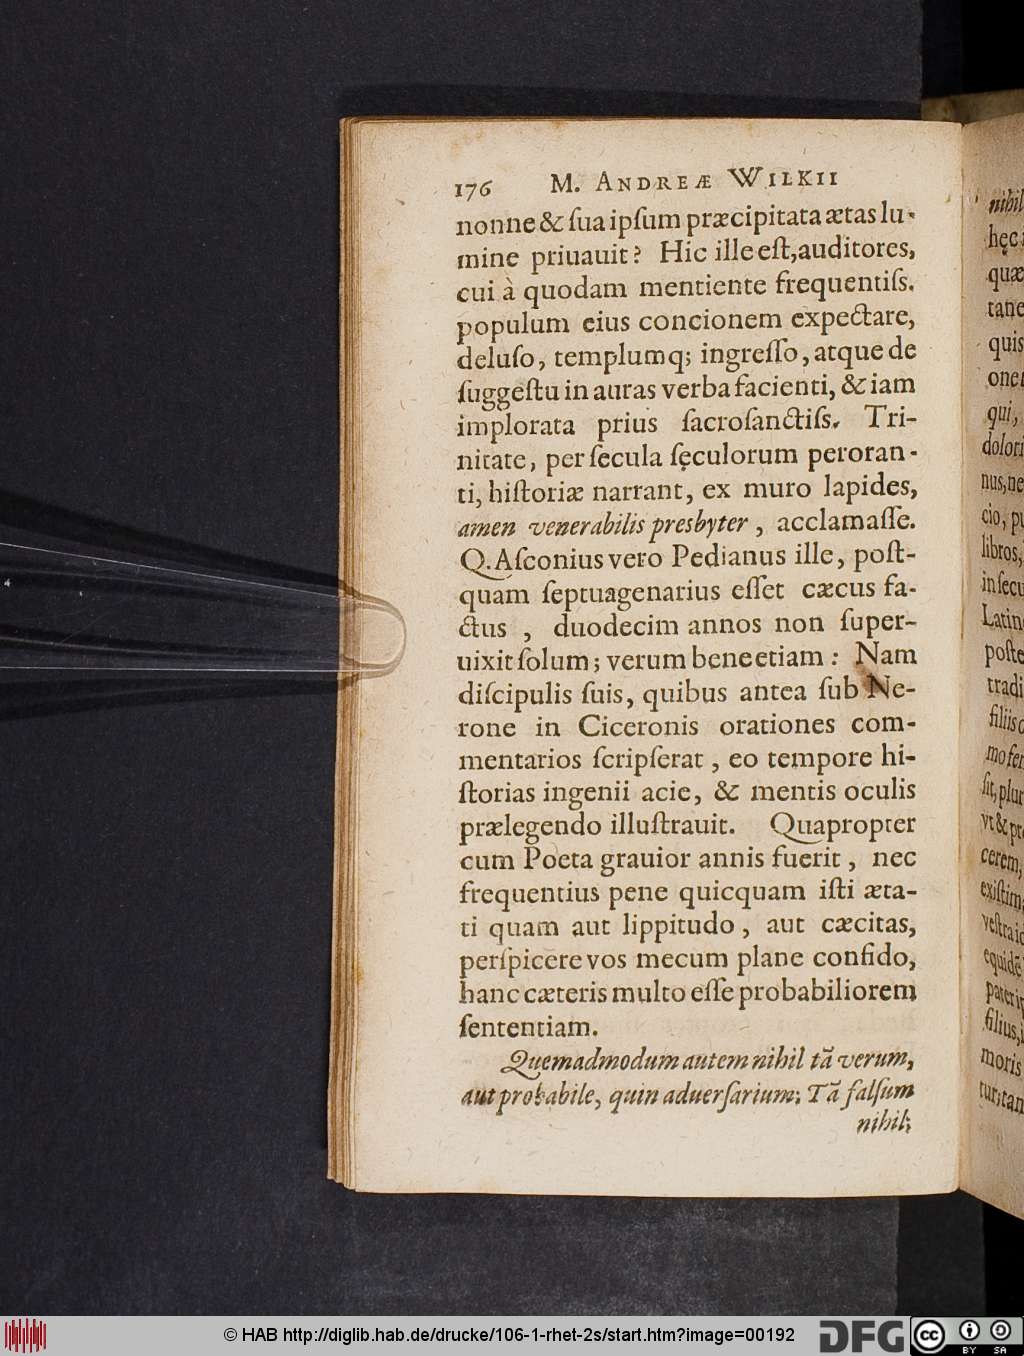 176 M. ANDREÆ WILKII
nonne & ſua ipſum præcipitata ætas lu-
mine priuauit? Hic ille eſt, auditores,
cui à quodam mentiente frequentiſs.
populum eius concionem expectare,
deluſo, templumq; ingreſſo, atque de
ſuggeſtu in auras verba facienti, & iam
implorata prius ſacroſanctiſs. Tri-
nitate, per ſecula ſęculorum peroran-
ti, hiſtoriæ narrant, ex muro lapides,
amen venerabilis presbyter, acclamaſſe.
Q. Aſconius vero Pedianus ille, poſt-
quam ſeptuagenarius eſſet cæcus fa-
ctus, duodecim annos non ſuper-
uixit ſolum; verum bene etiam: Nam
diſcipulis ſuis, quibus antea ſub Ne-
rone in Ciceronis orationes com-
mentarios ſcripſerat, eo tempore hi-
ſtorias ingenii acie, & mentis oculis
prælegendo illuſtrauit. Quapropter
cum Poeta grauior annis fuerit, nec
frequentius pene quicquam iſti æta-
ti quam aut lippitudo, aut cæcitas,
perſpicere vos mecum plane confido,
hanc cæteris multo eſſe probabiliorem
ſententiam.
Quemadmodum autem nihil tã verum,
aut probabile, quin aduerſarium; Tã falſum
nihil;
nihil
hęc i
quæ
tane
quis
oner
qui,
dolori
nus, ne
cio, pu
libros,
in ſecu
Latin
poſte
tradi
filiis
mo fer
ſit, plur
vt & pr
cerem,
exiſtim
veſtra
equidẽ
pater
filius,
moris
tur; tan
© HAB http://diglib.hab.de/drucke/106-1-rhet-2s/start.htm?image=00192
DFG
cc BY SA